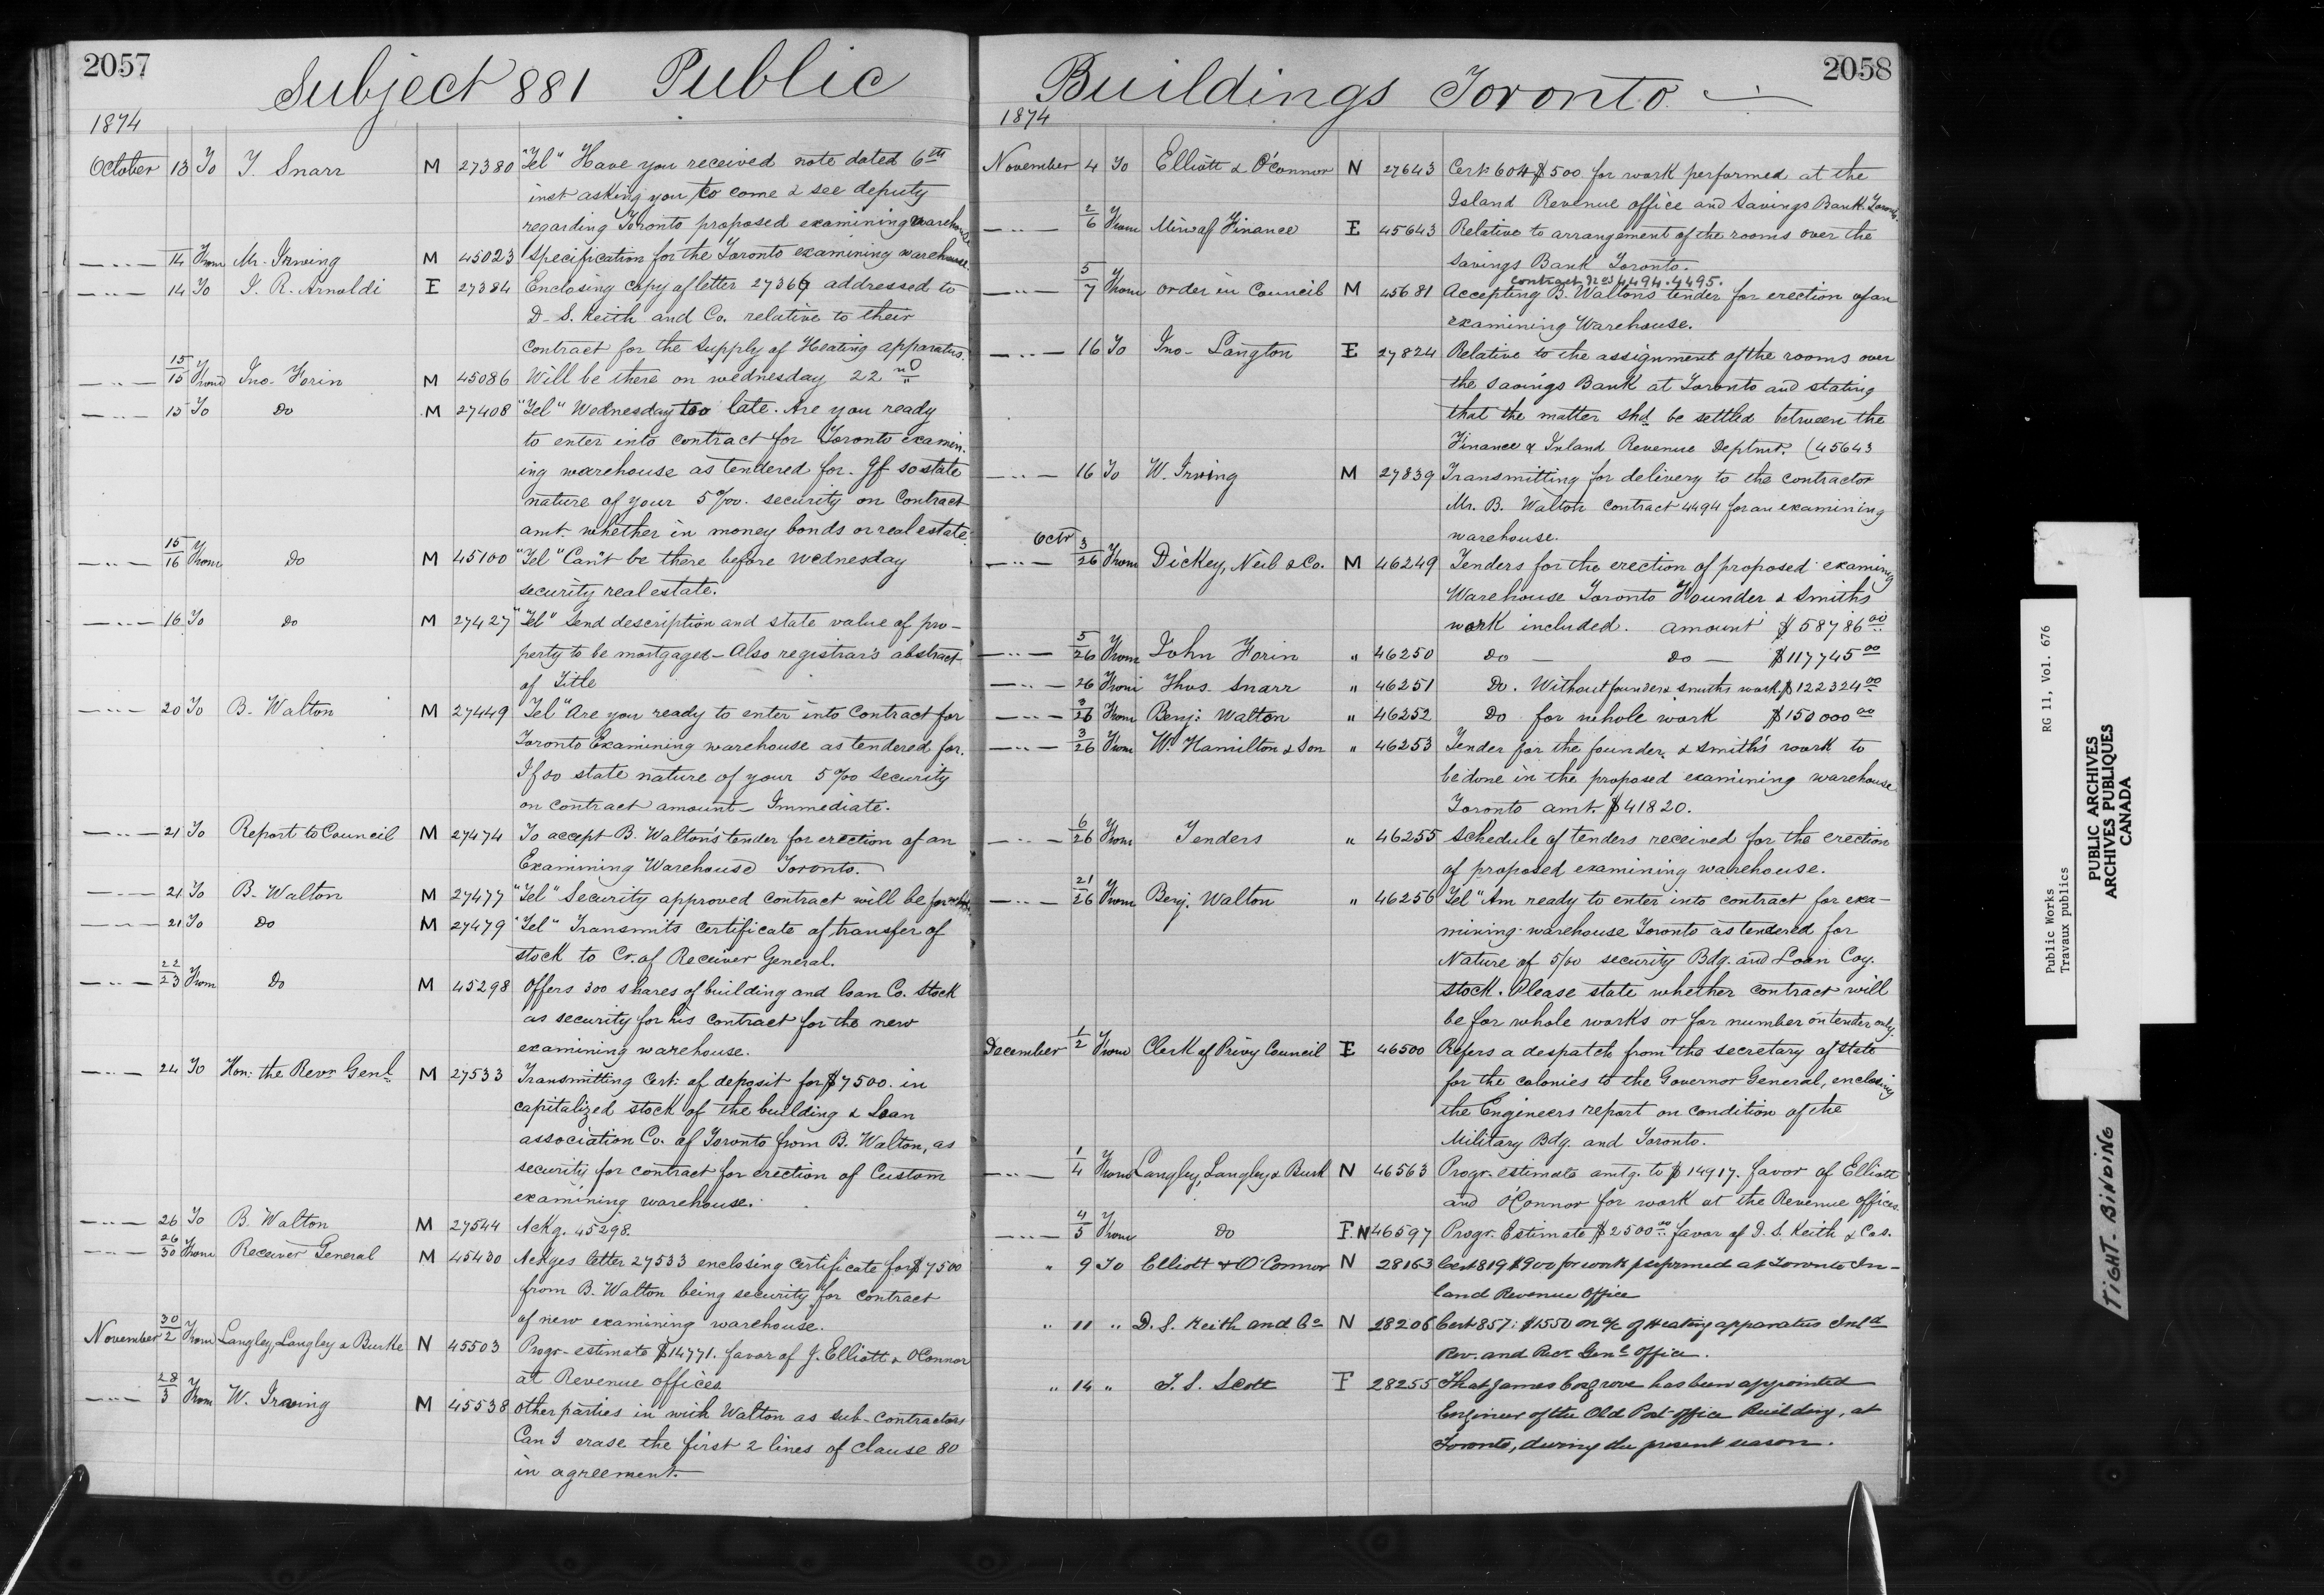 2057
Subject 881 Public
1874
October 13 To T. Snarr M 27380 "Tel" Have you received note dated 6th
inst asking you to come & see deputy
regarding Toronto proposed examining warehouse
—..— 14 From Mr. Irwing M 45023 Specification for the Toronto examining warehouse.
—..— 14 To J. R. Arnoldi E 27384 Enclosing copy of letter 27369 addressed to
D. S. Keith and Co. relative to their
contract for the supply of Heating apparatus.
—..— 15/15 From Jno. Forin M 45086 Will be there on wednesday 22nd
—..— 15 To Do M 27408 "Tel" Wednesday too late. Are you ready
to enter into contract for Toronto examin-
ing warehouse as tendered for. If so state
nature of your 5 0/00. security on Contract
amt. whether in money bonds or real estate.
—..— 15/16 From Do M 45100 "Tel" Can't be there before Wednesday
security real estate.
—..— 16 To Do M 27427 "Tel" Send description and state value of pro-
perty to be mortgaged – Also registrar's abstract
of Title
—..— 20 To B. Walton M 27449 "Tel" Are you ready to enter into Contract for
Toronto Examining warehouse as tendered for.
If so state nature of your 5 0/00 security
on contract amount – Immediate.
—..— 21 To Report to Council M 27474 To accept B. Walton's tender for erection of an
Examining Warehouse Toronto.
—..— 21 To B. Walton M 27477 "Tel" Security approved contract will be for
—..— 21 To Do M 27479 "Tel" Transmits certificate of transfer of
stock to Cr. of Receiver General.
—..— 22/23 From Do M 45298 Offers 300 shares of building and loan Co. Stock
as security for his contract for the new
examining warehouse.
—..— 24 To Hon: the Revr. Genl. M 27533 Transmitting Cert: of deposit for $7500. in
capitalized stock of the building & Loan
association Co. of Toronto from B. Walton, as
security for contract for erection of Custom
examining warehouse.
—..— 26 To B. Walton M 27544 Ackg. 45298.
—..— 26/30 From Receiver General M 45430 Ackges letter 27533 enclosing certificate for $7500
from B. Walton being security for contract
of new examining warehouse.
November 30/2 From Langley, Langley & Burke N 45503 Progr. estimate $14771. favor of J. Elliott & O'Connor
at Revenue offices
—..— 28/3 From W. Irwing M 45538 Other parties in with Walton as sub-contractors
Can I erase the first 2 lines of clause 80
in agreement.
2058
Buildings Toronto —
1874
November 4 To Elliott & O'Connor N 27643 Cert 604 $500. for work performed at the
Island Revenue office and Savings Bank Toronto
—..— 2/6 From Min. of Finance E 45643 Relative to arrangement of the rooms over the
Savings Bank Toronto.
contract Nos 4494. 4495.
—..— 5/7 From Order in Council M 45681 Accepting B. Walton's tender for erection of an
examining Warehouse.
—..— 16 To Jno. Langton E 27824 Relative to the assignment of the rooms over
the savings Bank at Toronto and stating
that the matter shd. be settled between the
Finance & Inland Revenue Deptmt. (45643
—..— 16 To W. Irwing M 27839 Transmitting for delivery to the contractor
Mr. B. Walton contract 4494 for an examining
warehouse.
Octr
—..— 3/26 From Dickey, Neil & Co. M 46249 Tenders for the erection of proposed examing
Warehouse Toronto Founder & Smiths
work included. amount $58786 00
—..— 5/26 From John Forin " 46250 do — do — $117745 00
—..— 26 From Thos. Snarr " 46251 Do. Without founder & smiths work $122324 00
—..— 3/26 From Benj: Walton " 46252 Do for whole work $150000 00
—..— 3/26 From W. Hamilton & Son " 46253 Tender for the founder & smith's work to
be done in the proposed examining warehouse
Toronto amt. $41820.
—..— 6/26 From Tenders " 46255 Schedule of tenders received for the erection
of proposed examining warehouse.
—..— 21/26 From Benj. Walton " 46256 "Tel" Am ready to enter into contract for exa-
mining warehouse Toronto as tendered for
Nature of 5/00 security Bdg. and Loan Coy.
stock. Please state whether contract will
be for whole works or for number on tender only.
December 1/2 From Clerk of Privy Council E 46500 Refers a despatch from the secretary of state
for the colonies to the Governor General, enclosing
the Engineers report on condition of the
Military Bdg. and Toronto.
—..— 1/4 From Langley, Langley & Burk N 46563 Progr. estimate amtg. to $14917. favor of Elliott
and O'Connor for work at the Revenue offices
—..— 4/5 From Do F.N 46597 Progr. Estimate $2500 00 favor of D. S. Keith & Cos.
" 9 To Elliott & O'Connor N 28163 Cert 819 $900 for work performed at Toronto In-
land Revenue Office
" 11 " D. S. Keith and Co N 28206 Cert 857: $1550 on a/c of Heating apparatus Inld
Rev. and Recr. Genl. Office.
" 14 " T. S. Scott F 28255 That James Cosgrove has been appointed
Engineer of the Old Post office Building, at
Toronto, during the present season.
Public Works RG 11, Vol. 676
Travaux publics
PUBLIC ARCHIVES
ARCHIVES PUBLIQUES
CANADA
TIGHT-BINDING